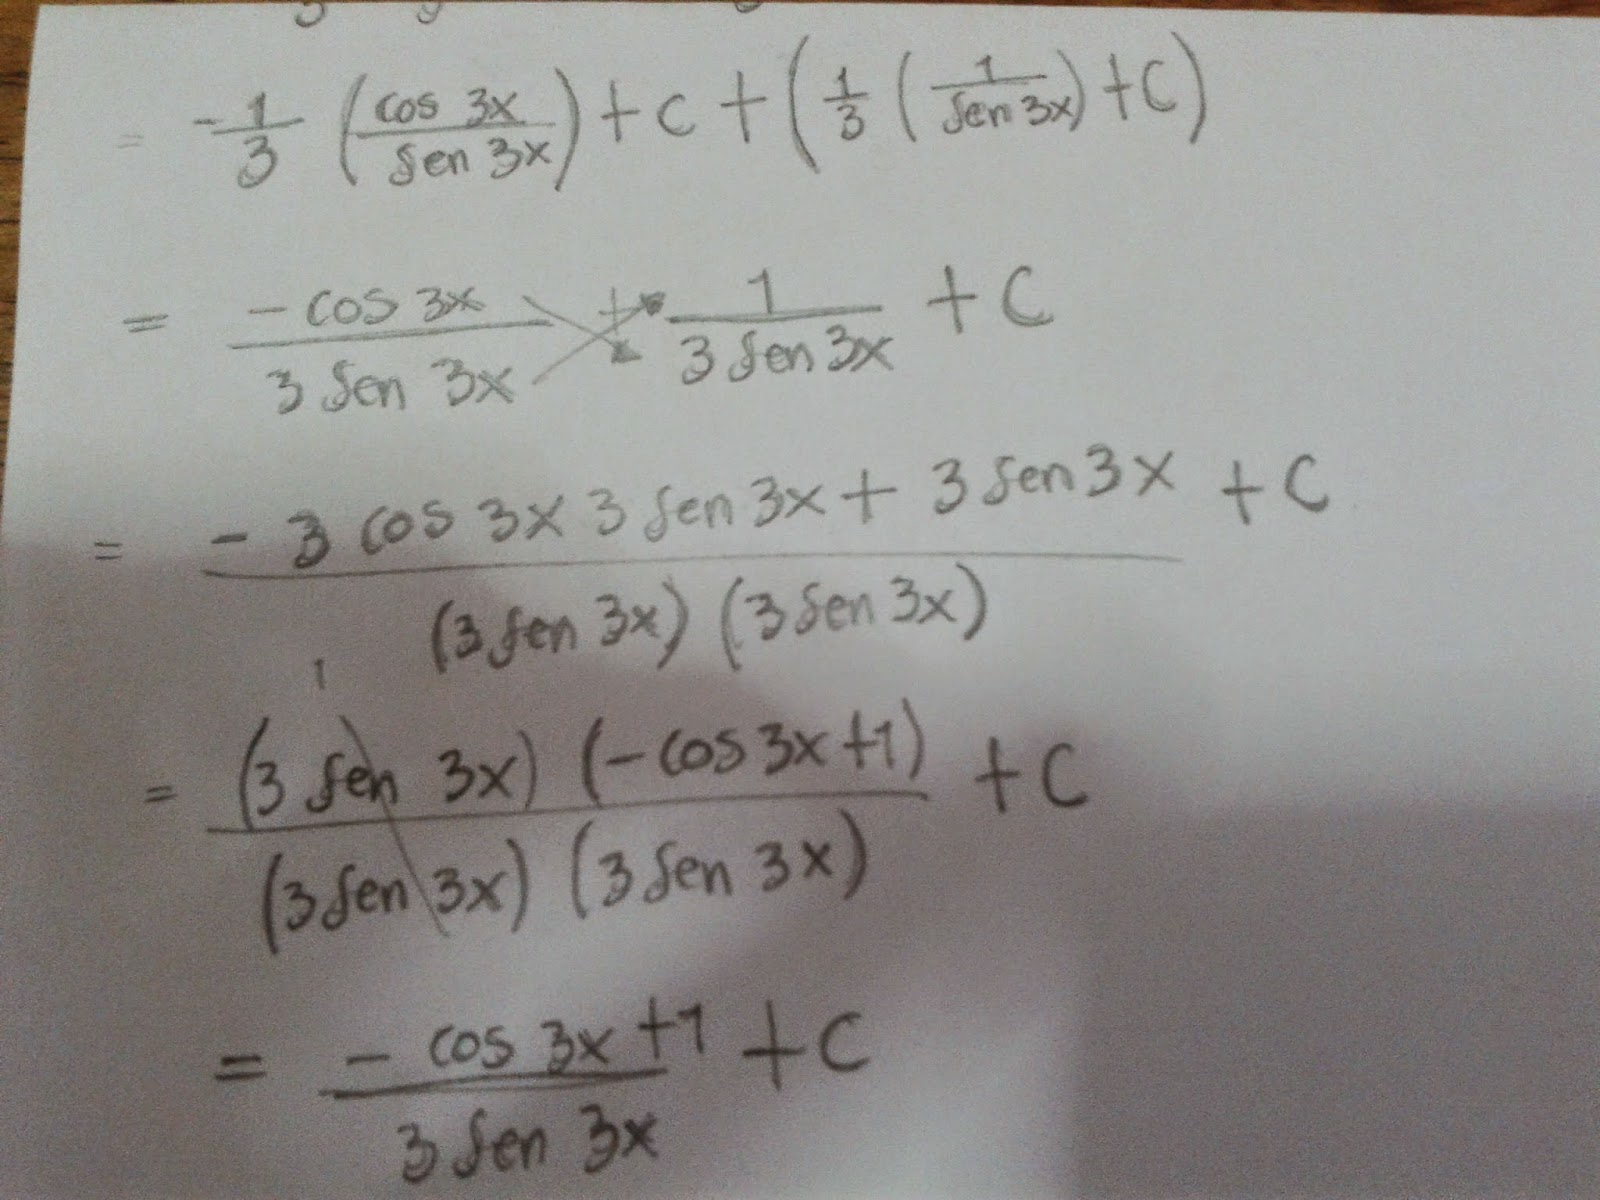 = -1/3 (cos 3x / sen 3x) + C + (1/3 (1 / sen 3x) + C)
= -cos 3x / 3 sen 3x + 1 / 3 sen 3x + C
= - 3 cos 3x 3 sen 3x + 3 sen 3x / (3 sen 3x) (3 sen 3x) + C
1
= (3 sen 3x) (-cos 3x + 1) / (3 sen 3x) (3 sen 3x) + C
= - cos 3x + 1 / 3 sen 3x + C